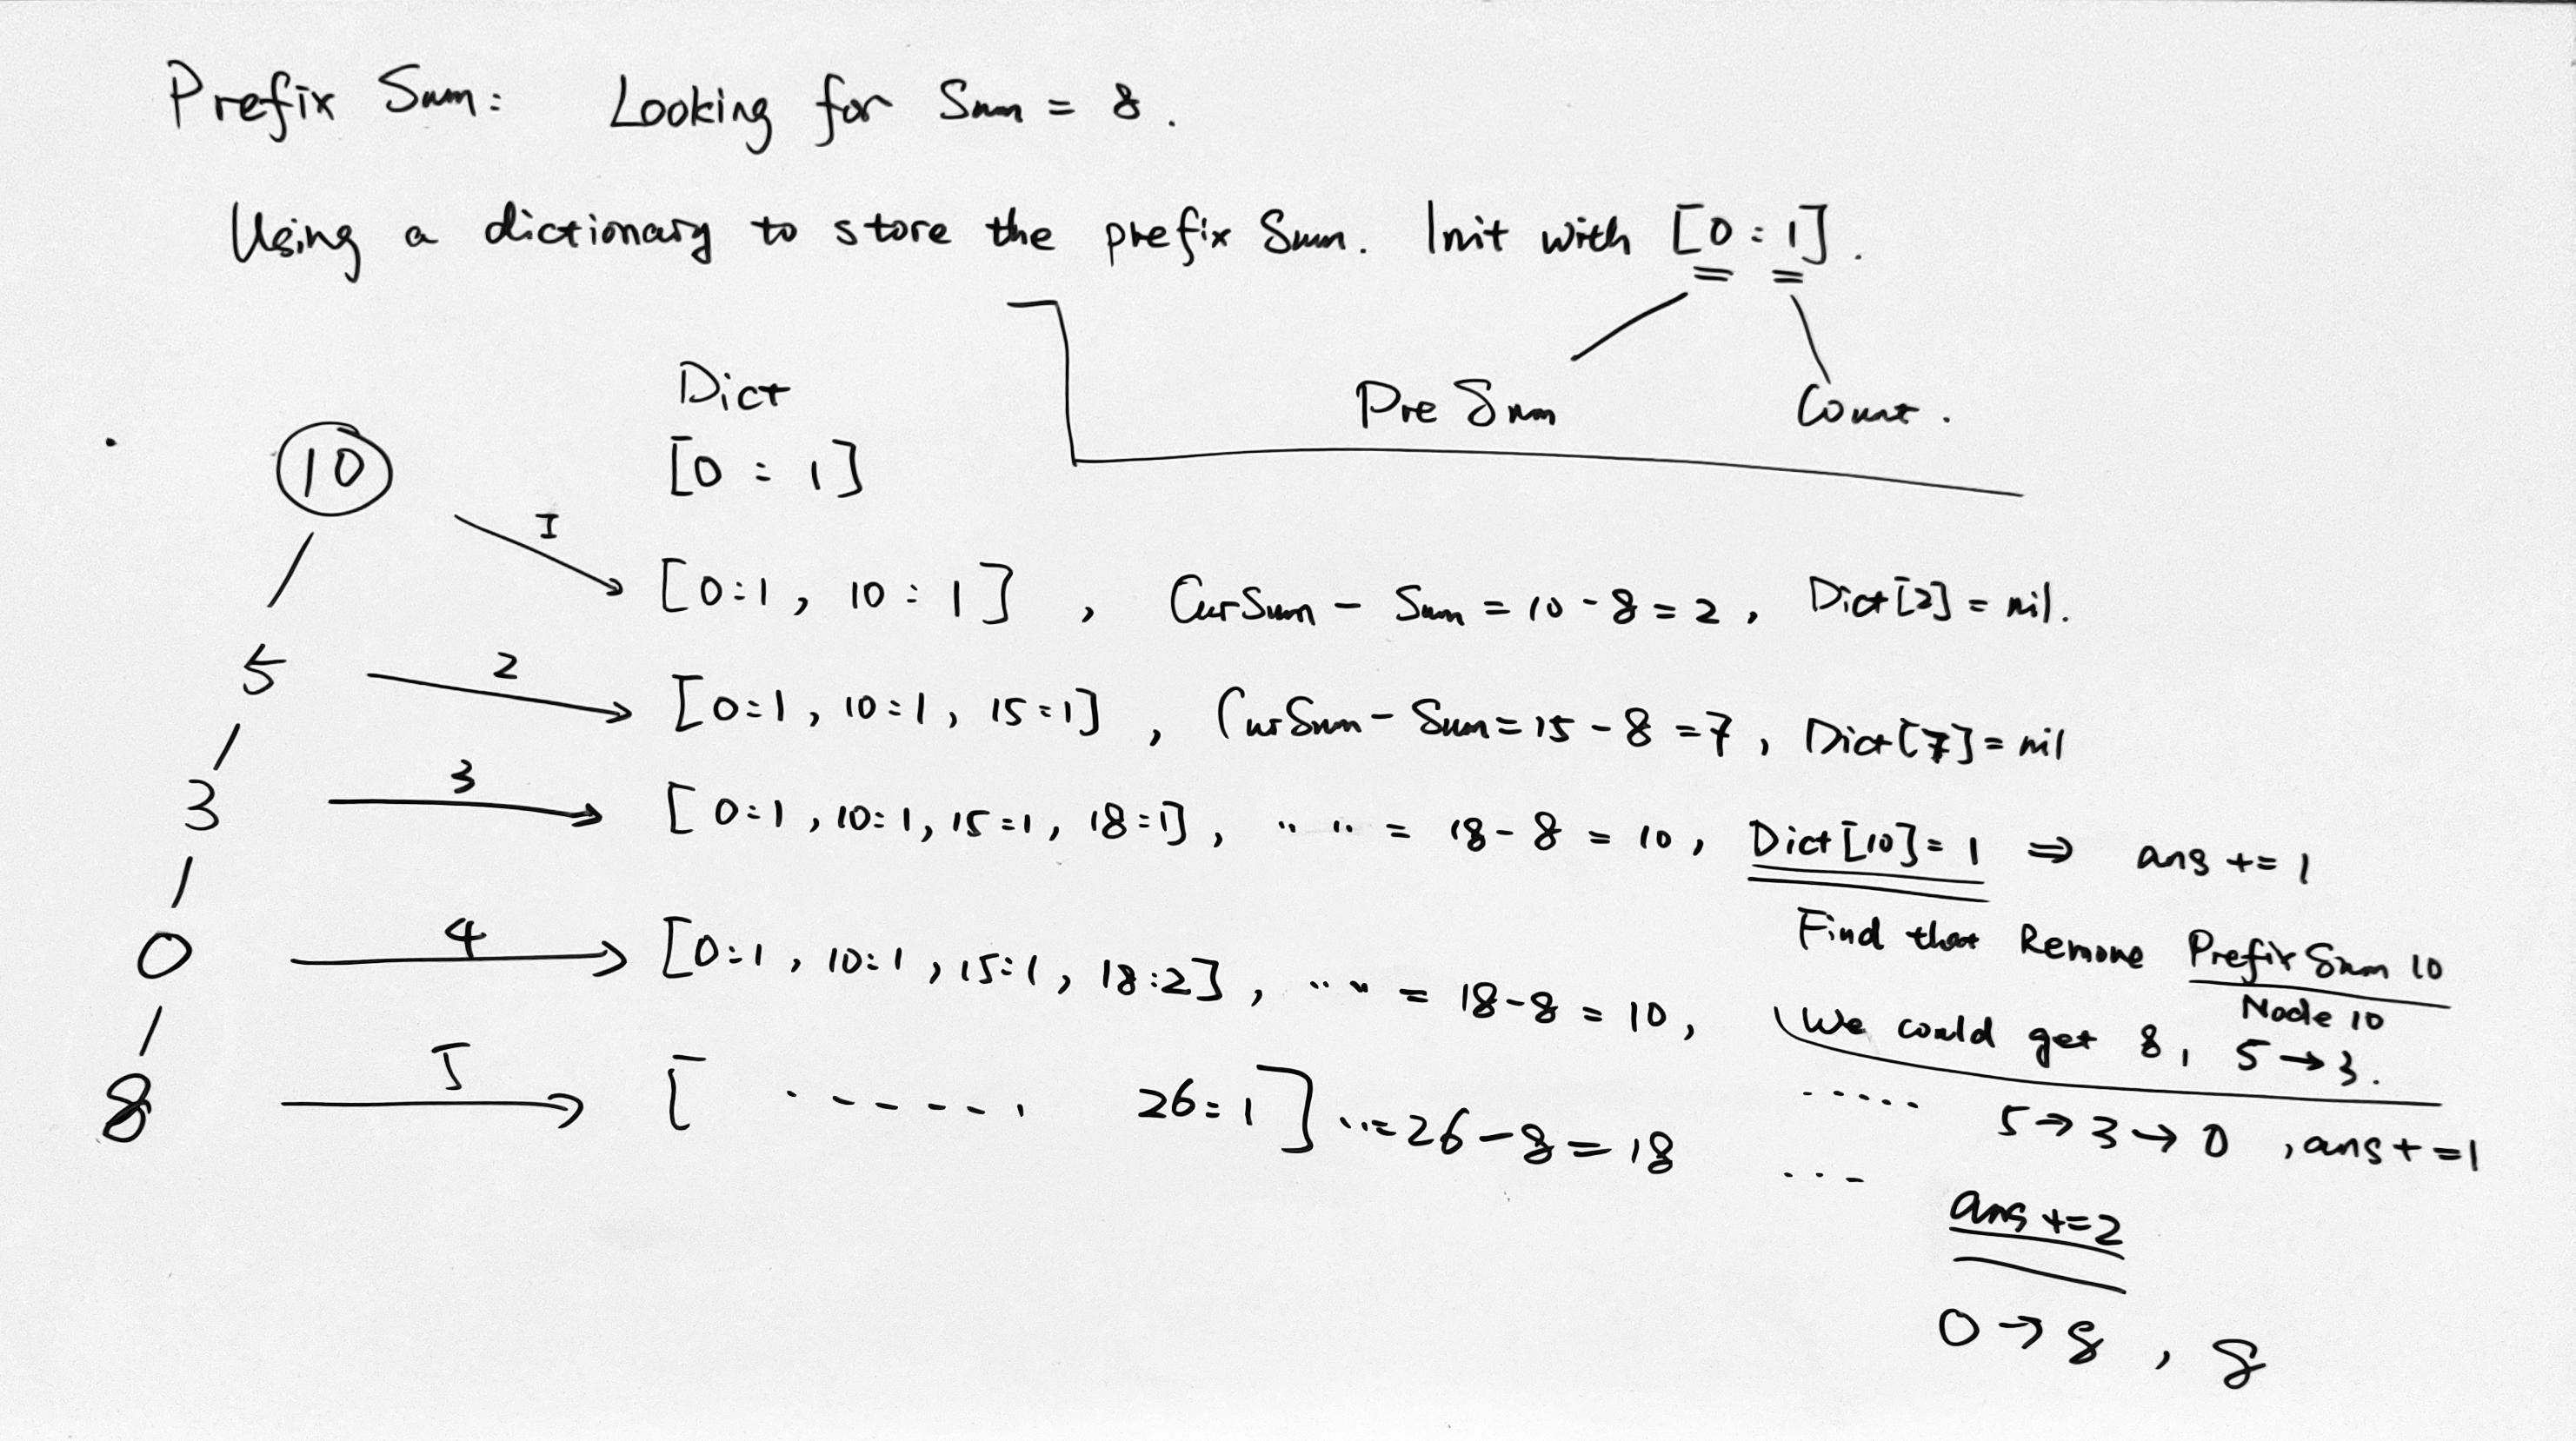 Prefix Sum: Looking for Sum = 8.
Using a dictionary to store the prefix Sum. Init with [0:1].
Pre Sum Count.
Dict
10 [0:1]
1 [0:1, 10:1], CurSum - Sum = 10-8=2, Dict[2]=nil.
5 2 [0:1, 10:1, 15:1], CurSum - Sum=15-8=7, Dict[7]=nil
3 3 [0:1, 10:1, 15:1, 18:1], " " = 18-8 = 10, Dict[10]=1 ⇒ ans += 1
Find that Remove Prefix Sum 10
Node 10
0 4 [0:1, 10:1, 15:1, 18:2], " " = 18-8 = 10,
We could get 8, 5→3.
..... 5→3→0, ans+=1
8 5 [ ...... 26:1] "=26-8=18 ...
ans +=2
0→8, 8